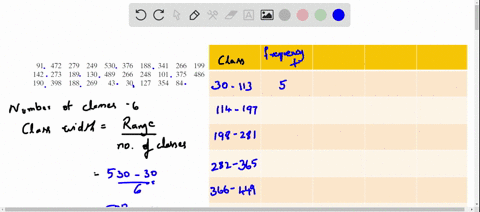 91, 472 279 249 530, 376 188, 341 266 199
142, 273 189, 130, 489 266 248 101, 375 486
190, 398 188, 269 43, 30, 127 354 84,
Number of classes - 6
Class width = Range
no. of classes
= 530 - 30
6
Class frequency
f
30 - 113 5
114 - 197
198 - 281
282 - 365
366 - 449